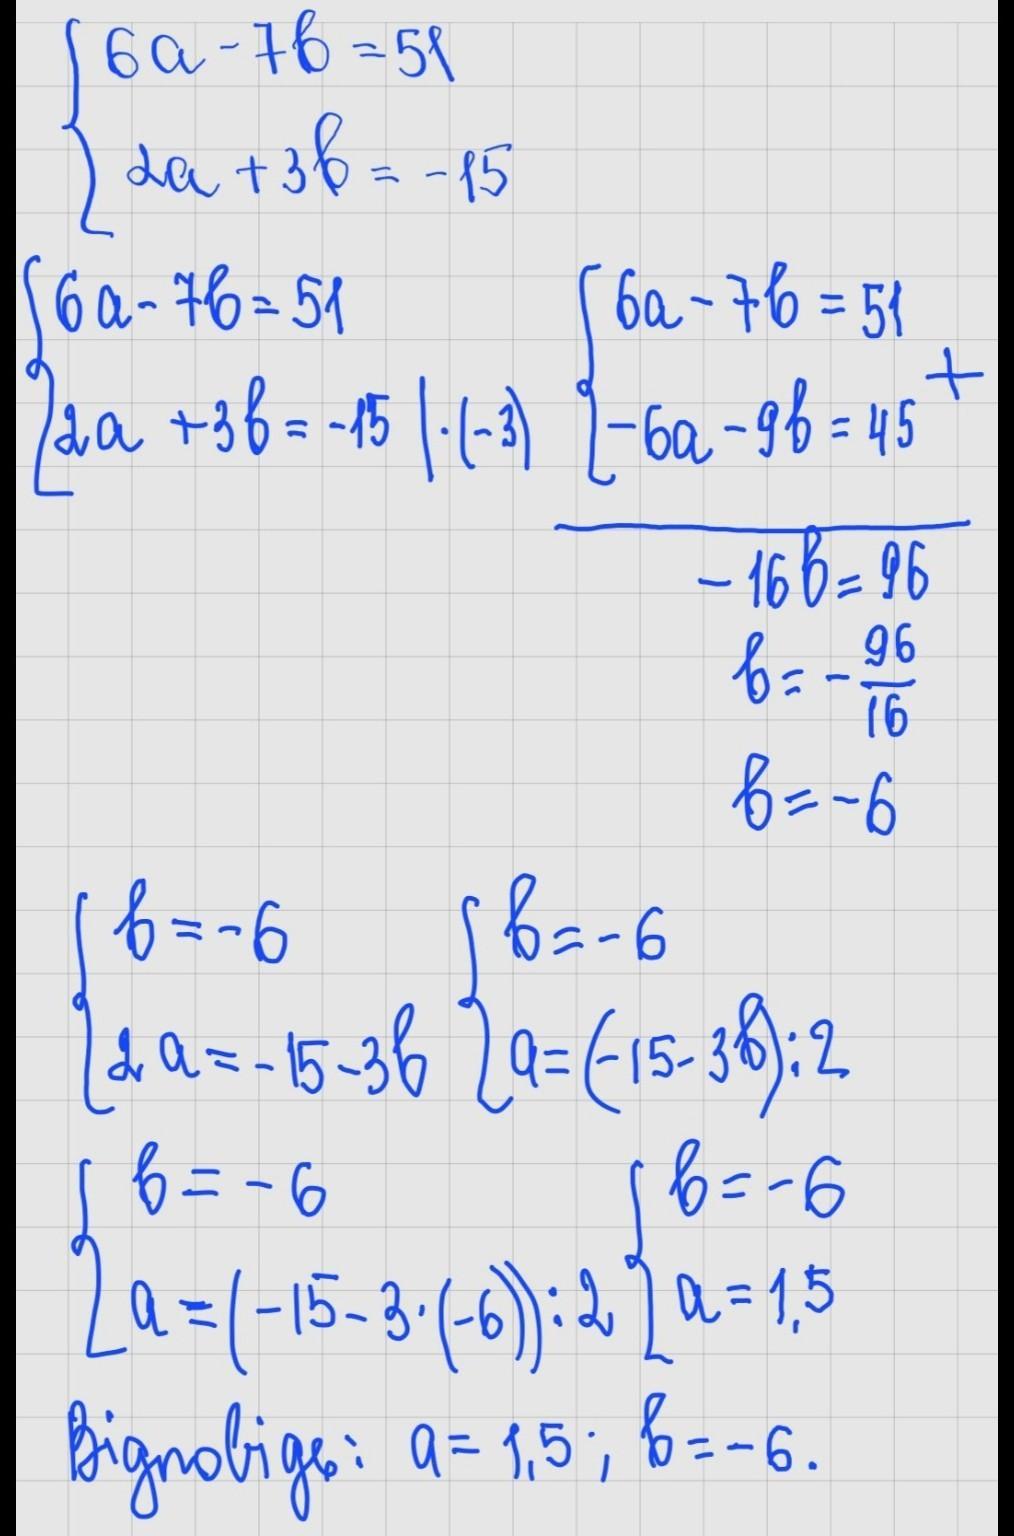 6a - 7b = 51
2a + 3b = -15
6a - 7b = 51
2a + 3b = -15 | · (-3)
6a - 7b = 51
-6a - 9b = 45 +
-16b = 96
b = - 96/16
b = -6
b = -6
2a = -15 - 3b
b = -6
a = (-15 - 3b) : 2
b = -6
a = (-15 - 3 · (-6)) : 2
b = -6
a = 1,5
Відповідь: a = 1,5 ; b = -6.